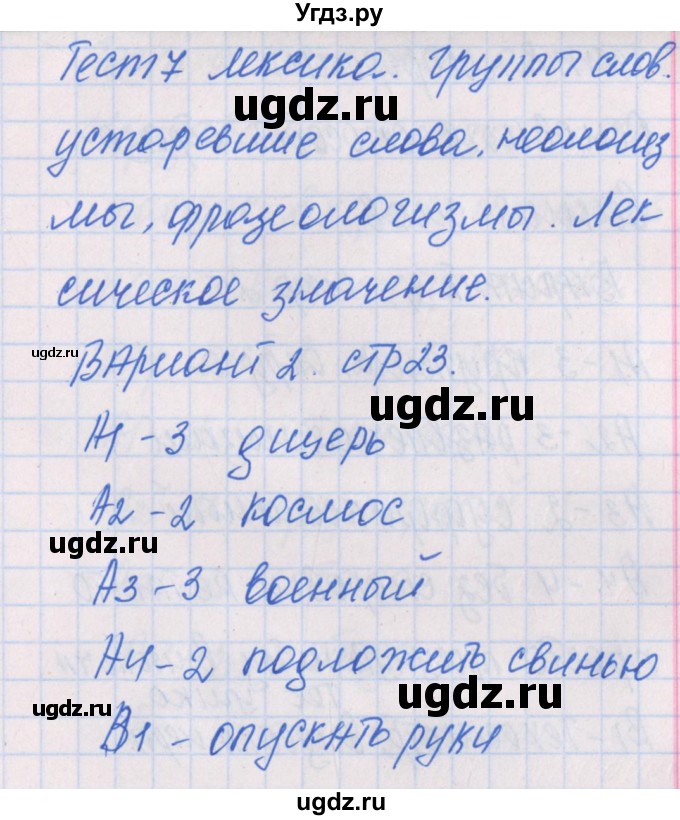 Угдз.ру
Тест 7 лексика. Группы слов.
ugdz.ru
устаревшие слова, неологиз
мы, фразеологизмы. Лек-
сическое значение.
ugdz.ru
Вариант 2. стр 23.
ugdz.ru
А1 - 3 дщерь
А2 - 2 космос
ugdz.ru
А3 - 3 военный
А4 - 2 подложить свинью
ugdz.ru
ugdz.ru
В1 - опускать руки
ugdz.ru